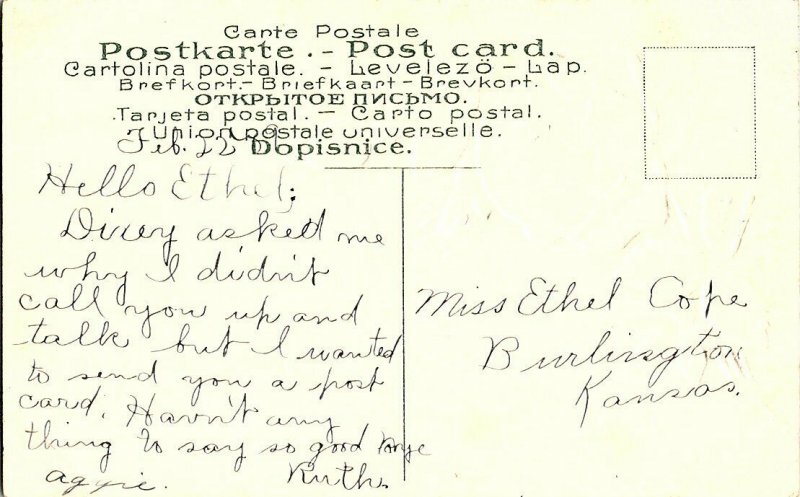 Carte Postale
Postkarte. - Post card.
Cartolina postale. - Levelezö - Lap.
Brefkort.- Briefkaart - Brevkort.
ОТКРЫТОЕ ПИСЬМО.
Tarjeta postal. - Carto postal.
Union postale universelle.
Dopisnice.
Feb. 22
Hello Ethel;
asked me
why I didn't
call you up and
talk but I wanted
to send you a post
card. Havn't any
thing to say so good bye
Aggie. Ruth.
Miss Ethel Cope
Burlington
Kansas.